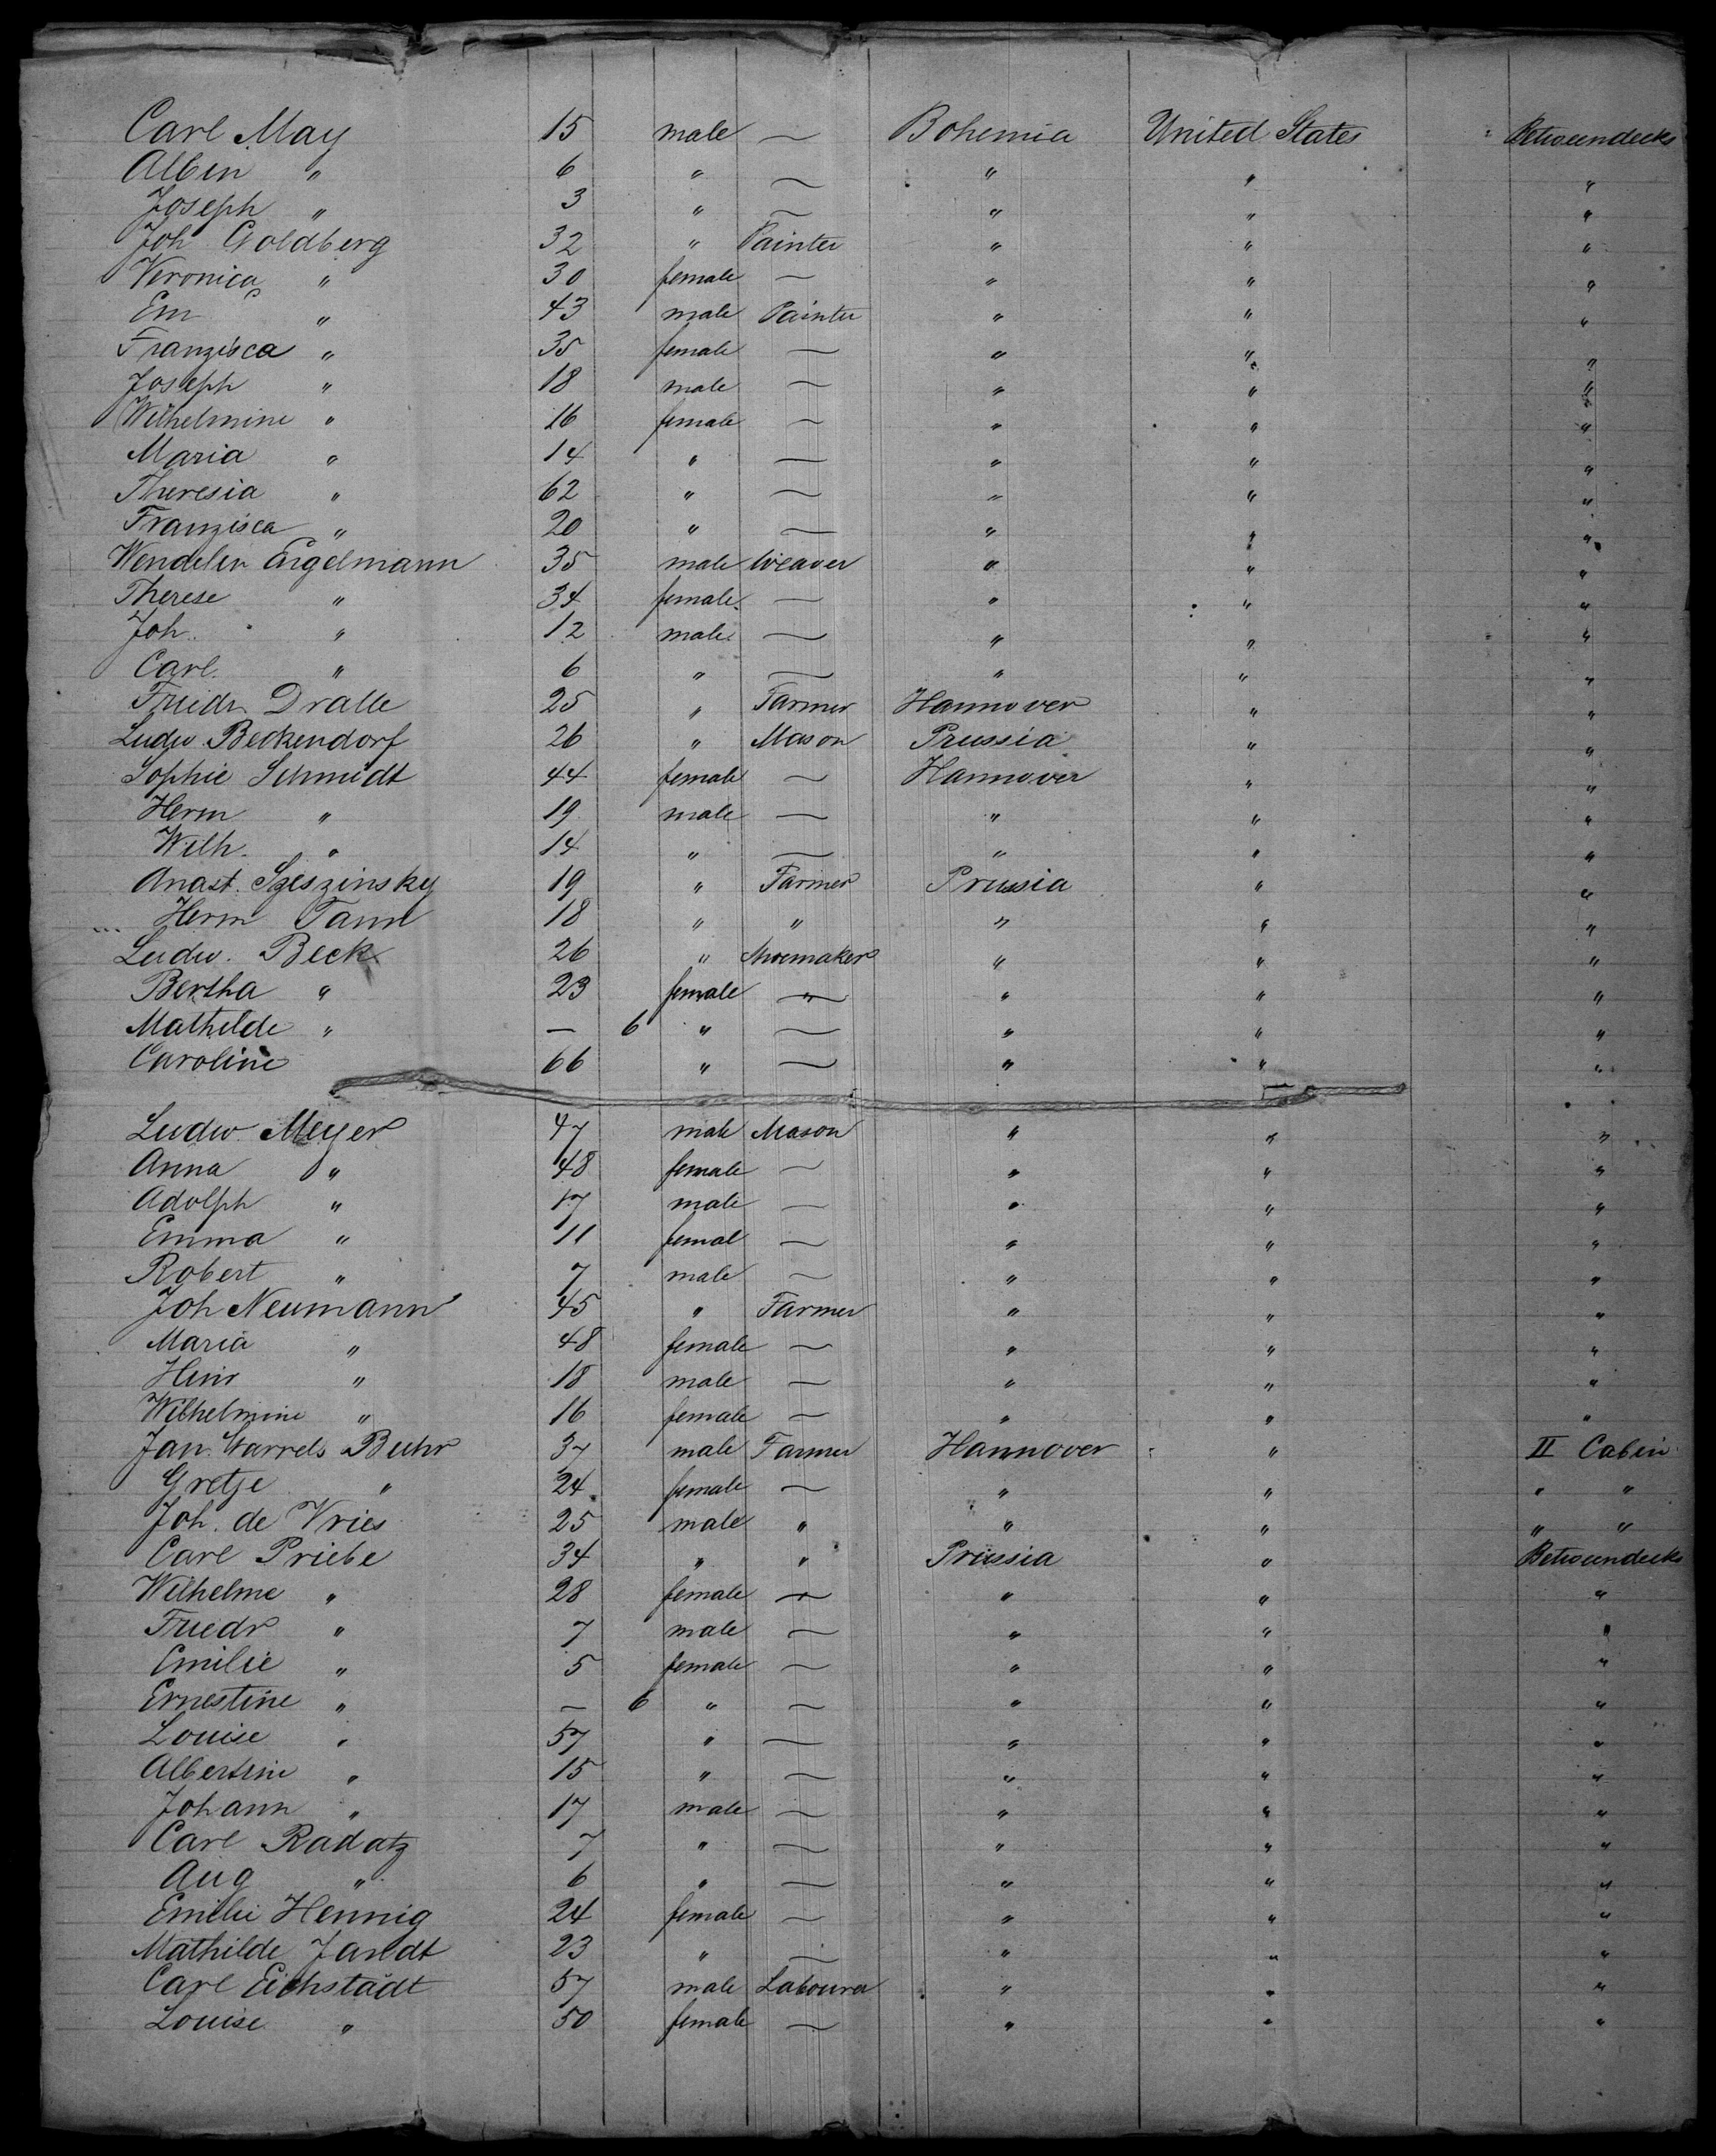 Carl May 15 male — Bohemia United States Betweendecks
Albin " 6 " — " " "
Joseph " 3 " — " " "
Joh Goldberg 32 " Painter " " "
Veronica " 30 female — " " "
Em " 43 male Painter " " "
Franzisca " 35 female — " " "
Joseph " 18 male — " " "
Wilhelmine " 16 female — " " "
Maria " 14 " — " " "
Theresia " 62 " — " " "
Franzisca " 20 " — " " "
Wendelin Engelmann 35 male Weaver " " "
Therese " 34 female — " " "
Joh. " 12 male — " " "
Carl " 6 " — " " "
Friedr. Dralle 25 " Farmer Hannover " "
Ludw. Beckendorf 26 " Mason Prussia " "
Sophie Schmidt 44 female — Hannover " "
Herm " 19 male — " " "
Wilh. " 14 " — " " "
Anast. Szeszinsky 19 " Farmer Prussia " "
Herm Tann 18 " " " " "
Ludw. Beck 26 " Shoemaker " " "
Bertha " 23 female — " " "
Mathilde " — 6 " — " " "
Caroline 66 " — " " "
Ludw Meyer 47 male Mason " " "
Anna " 48 female — " " "
Adolph " 17 male — " " "
Emma " 11 femal — " " "
Robert " 7 male — " " "
Joh Neumann 45 " Farmer " " "
Maria " 48 female — " " "
Heinr " 18 male — " " "
Wilhelmine " 16 female — " " "
Jan Warrels Buhr 37 male Farmer Hannover " II Cabin
Gretje " 24 female — " " " "
Joh. de Vries 25 male " " " " "
Carl Priebe 34 " " Prussia " Betweendecks
Wilhelme " 28 female — " " "
Friedr " 7 male — " " "
Emilie " 5 female — " " "
Ernestine " — 6 " — " " "
Louise " 57 " — " " "
Albertine " 15 " — " " "
Johann " 17 male — " " "
Carl Radatz 7 " — " " "
Aug " 6 " — " " "
Emilie Hennig 24 female — " " "
Mathilde Jandt 23 " — " " "
Carl Eichstädt 57 male Labourer " " "
Louise " 50 female — " " "